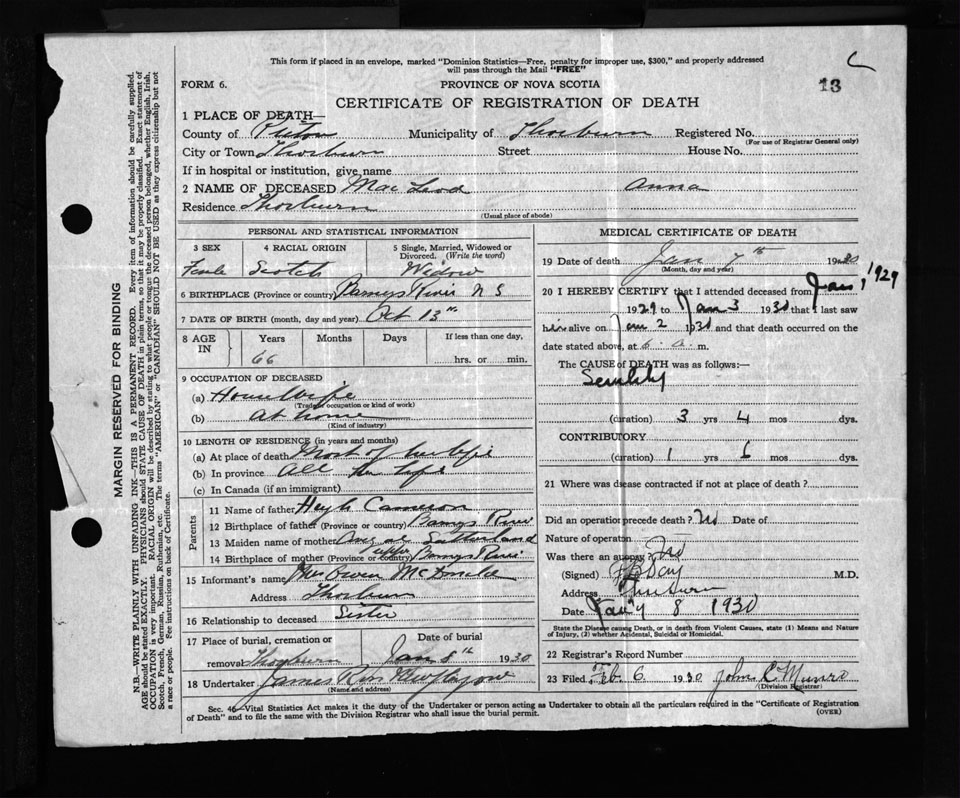 This form if placed in an envelope, marked "Dominion Statistics—Free, penalty for improper use, $300," and properly addressed
will pass through the Mail "FREE"
FORM 6.
PROVINCE OF NOVA SCOTIA
13
CERTIFICATE OF REGISTRATION OF DEATH
1 PLACE OF DEATH—
County of Pictou Municipality of Thorburn Registered No.
(For use of Registrar General only)
City or Town Thorburn Street House No.
If in hospital or institution, give name
2 NAME OF DECEASED MacLeod Anna
Residence Thorburn
(Usual place of abode)
PERSONAL AND STATISTICAL INFORMATION
3 SEX 4 RACIAL ORIGIN 5 Single, Married, Widowed or
Divorced. (Write the word)
Female Scotch Widow
6 BIRTHPLACE (Province or country) Barneys River N S
7 DATE OF BIRTH (month, day and year) Oct 13th
8 AGE IN Years Months Days If less than one day,
66 hrs. or min.
9 OCCUPATION OF DECEASED
(a) Housewife
(Trade, occupation or kind of work)
(b) at home
(Kind of industry)
10 LENGTH OF RESIDENCE (in years and months)
(a) At place of death Most of her life
(b) In province all her life
(c) In Canada (if an immigrant)
Parents
11 Name of father Hugh Cameron
12 Birthplace of father (Province or country) Barneys River
13 Maiden name of mother Sutherland
14 Birthplace of mother (Province or country) Upper Barneys River
15 Informant's name Mrs Owen McDonald
Address Thorburn
16 Relationship to deceased Sister
17 Place of burial, cremation or Date of burial
removal Thorburn Jan 8th 1930
18 Undertaker James Ross New Glasgow
(Name and address)
MEDICAL CERTIFICATE OF DEATH
19 Date of death Jan 7th 1930
(Month, day and year)
20 I HEREBY CERTIFY that I attended deceased from Jan 1 1929
1929 to Jan 3 1930 that I last saw
him alive on Jan 2 1930 and that death occurred on the
date stated above, at 6 a. m.
The CAUSE of DEATH was as follows:—
Senility
(duration) 3 yrs 4 mos dys.
CONTRIBUTORY
(duration) 1 yrs 6 mos dys.
21 Where was disease contracted if not at place of death?
Did an operation precede death? No Date of
Nature of operation
Was there an autopsy? No
(Signed) Day M.D.
Address Thorburn
Date Jany 8 1930
State the Disease causing Death, or in death from Violent Causes, state (1) Means and Nature
of Injury, (2) whether Accidental, Suicidal or Homicidal.
22 Registrar's Record Number
23 Filed Feb. 6 1930 John C Munro
(Division Registrar)
Sec. 46—Vital Statistics Act makes it the duty of the Undertaker or person acting as Undertaker to obtain all the particulars required in the "Certificate of Registration
of Death" and to file the same with the Division Registrar who shall issue the burial permit.
(OVER)
MARGIN RESERVED FOR BINDING
N.B.—WRITE PLAINLY WITH UNFADING INK—THIS IS A PERMANENT RECORD. Every item of information should be carefully supplied.
AGE should be stated EXACTLY. PHYSICIANS should STATE CAUSE OF DEATH in plain terms, so that it may be properly classified. Exact statement of
OCCUPATION is very important. RACIAL ORIGIN will be described by stating to what people or tongue the deceased person belonged, whether English, Irish,
Scotch, French, German, Russian, Ruthenian, etc. The terms "AMERICAN" or "CANADIAN" SHOULD NOT BE USED as they express citizenship but not
a race or people. Fee instructions on back of Certificate.